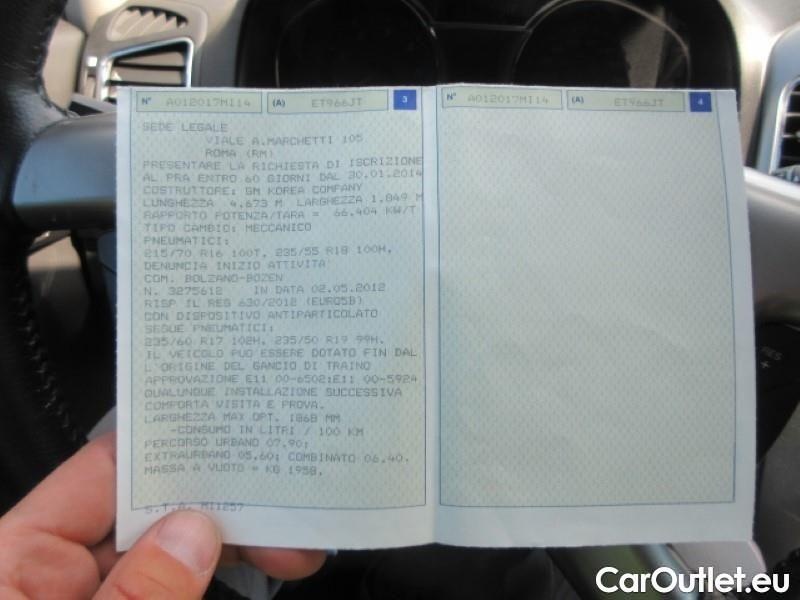 N° A012017MI14 (A) ET966JT 3
SEDE LEGALE
VIALE A.MARCHETTI 105
ROMA (RM)
PRESENTARE LA RICHIESTA DI ISCRIZIONE
AL PRA ENTRO 60 GIORNI DAL 30.01.2014
COSTRUTTORE: GM KOREA COMPANY
LUNGHEZZA 4.673 M LARGHEZZA 1.849 M
RAPPORTO POTENZA/TARA = 66,404 KW/T
TIPO CAMBIO: MECCANICO
PNEUMATICI:
215/70 R16 100T, 235/55 R18 100H,
DENUNCIA INIZIO ATTIVITA'
COM. BOLZANO-BOZEN
N. 3275612 IN DATA 02.05.2012
RISP IL REG 630/2012 (EURO5B)
CON DISPOSITIVO ANTIPARTICOLATO
SEGUE PNEUMATICI:
235/60 R17 102H, 235/50 R19 99H.
IL VEICOLO PUO'ESSERE DOTATO FIN DAL
L'ORIGINE DEL GANCIO DI TRAINO
APPROVAZIONE E11 00-6502;E11 00-5924
QUALUNQUE INSTALLAZIONE SUCCESSIVA
COMPORTA VISITA E PROVA.
LARGHEZZA MAX OPT. 1868 MM
-CONSUMO IN LITRI / 100 KM
PERCORSO URBANO 07,90;
EXTRAURBANO 05,60; COMBINATO 06,40.
MASSA A VUOTO = KG 1958.
S.T.A. MI1257
N° A012017MI14 (A) ET966JT 4
RES
+
CarOutlet.eu